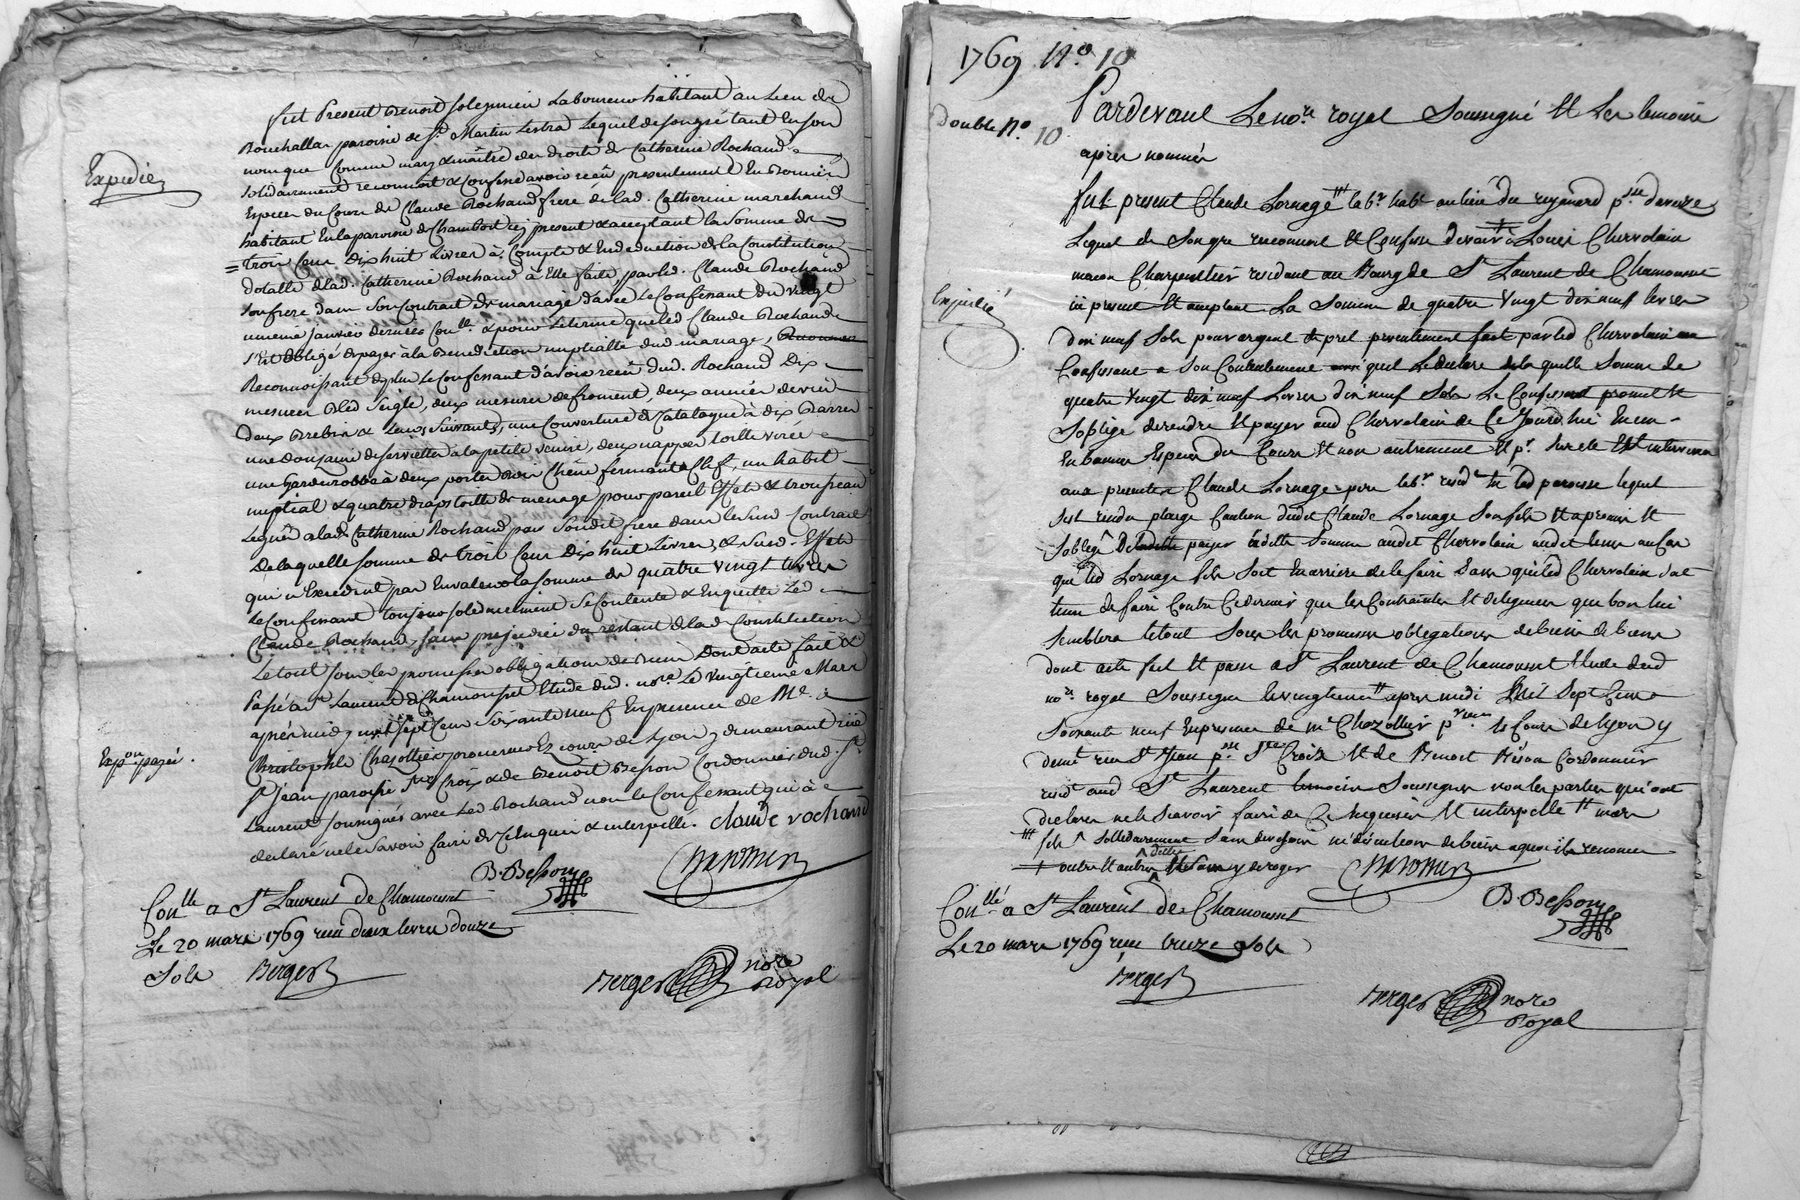 fut Present Benoist Laboureur habitant au Lieu de
Bouchallas paroisse de St. Martin Lestra Lequel de son gré tant En son
nom que Comme mary & maître des droits de Catherine Rochand
Solidairement reconnoit & Confesse avoir reçeu presentement En Bonnes
Especes du Cours de Claude Rochand frere de lad. Catherine marchand
habitant En la paroisse de Chambost icy present & acceptant la Somme de
trois Cent Dix huit Livres à Compte & En deduction de la Constitution
dotalle de lad. Catherine Rochand à Elle faite par led. Claude Rochand
son frere dans Son Contrat de mariage d'avec Le Confessant du vingt
uneme janvier dernier Conllé & pour Leterme que led Claude Rochand
s'Est obligé de payer à la Benediction nuptialle dud mariage,
Reconnoissant de plus Le Confessant d'avoir reçeu dud. Rochand Dix
mesures Bled Seigle, deux mesures de froment, deux années de vin
deux Brebis & leurs suivants, une Couverture de Catalogne à dix Barres
une Douzaine de serviettes à la petite venise, deux nappes toille
une Garderobbe à deux portes Bois Chêne fermant à Clef, un habit
nuptial & quatre draps toille de menage pour pareil Effets & trousseau
Legués à lad. Catherine Rochand par Sondit frere dans le Susd Contrat
De laquelle somme de trois Cent Dix huit Livres & Susd. Effets
qui n'Excedent pas En valeur la somme de quatre vingt livres
Le Confessant toujours solidairement Se Contente & En quitte Led
Claude Rochand, sans prejudice du restant de lad Constitution
Le tout sous les promesses obligations de Biens Dont acte fait &
Passé a St Laurent de Chamousset Etude dud. nore Le vingtieme Mars
après midy mil sept Cent Soixante neuf En presence de Me
Christophle Chazottier procureur Ez cours de Lyon y demeurant rüe
St Jean paroisse Ste Croix & de Benoit Besson Cordonnier dud. St.
Laurent soussignés avec Led Rochand non le Confessant qui à
declaré ne le Sçavoir faire de Ce Enquis & interpellé. claude rochand
Expedié
Expon payée.
B. Besson
Conllé a St Laurent de Chamousset
Le 20 mars 1769 reçu deux livres douze
Sols Berger
Berger nore
Royal
1769 No. 10
double No. 10
Pardevant Le nore royal Soussigné Et Les temoins
apres nommés
fut present Claude Lornage ttt labr habt au lieu du
Lequel de Son gre reconnoit Et Confesse devoir ‡ a Louis Chervolain
macon Charpentier residant au Bourg de St Laurent de Chamousset
ici present Et acceptant La Somme de quatre Vingt dix neuf livres
dix neuf Sols pour argent de pret presentement fait par led Chervolain au
Confessant a Son Contentement qu'il Le declare de la quelle Somme de
quatre Vingt dix neuf Livres dix neuf Sols Le Confessant promet Et
Soblige de rendre Et payer aud Chervolain de Ce Jourdhui En un an
En bonnes Especes du Cours Et non autrement Et pr Surete Est intervenu
aux presentes Claude Lornage pere labr resid en lad paroisse lequel
Sest rendu pleige Caution dudit Claude Lornage Son fils Et a promis Et
Soblige payer ladite Somme audit Chervolain audit terme au Cas
que led Lornage fils Soit En arriere de le faire Sans que led Chervolain Soit
tenu de faire Contre Ce dernier que les Contraintes Et diligences que bon lui
Semblera le tout Sous les promesses obligations de biens
dont acte fait Et passe a St Laurent de Chamousset Etude dud
nore royal Soussigné le vingtieme tt apres midi Mil Sept Cent
Soixante neuf En presence de me Chazottier pr es Cours de lyon y
demt rue St Jean psse Ste Croix Et de Benoit Besson Cordonnier
resid aud St Laurent temoins Soussignes non les parties qui ont
declaré ne le Scavoir faire de Ce Enquises Et interpellé tt mars
ttt fils ^ Sollidairement Sans division ni discution de biens a quoi ils renoncent
‡ outre Et
Expedié
B. Besson
Conllé a St Laurent de Chamousset
Le 20 mars 1769 reçu treize Sols
Berger
Berger nore
Royal